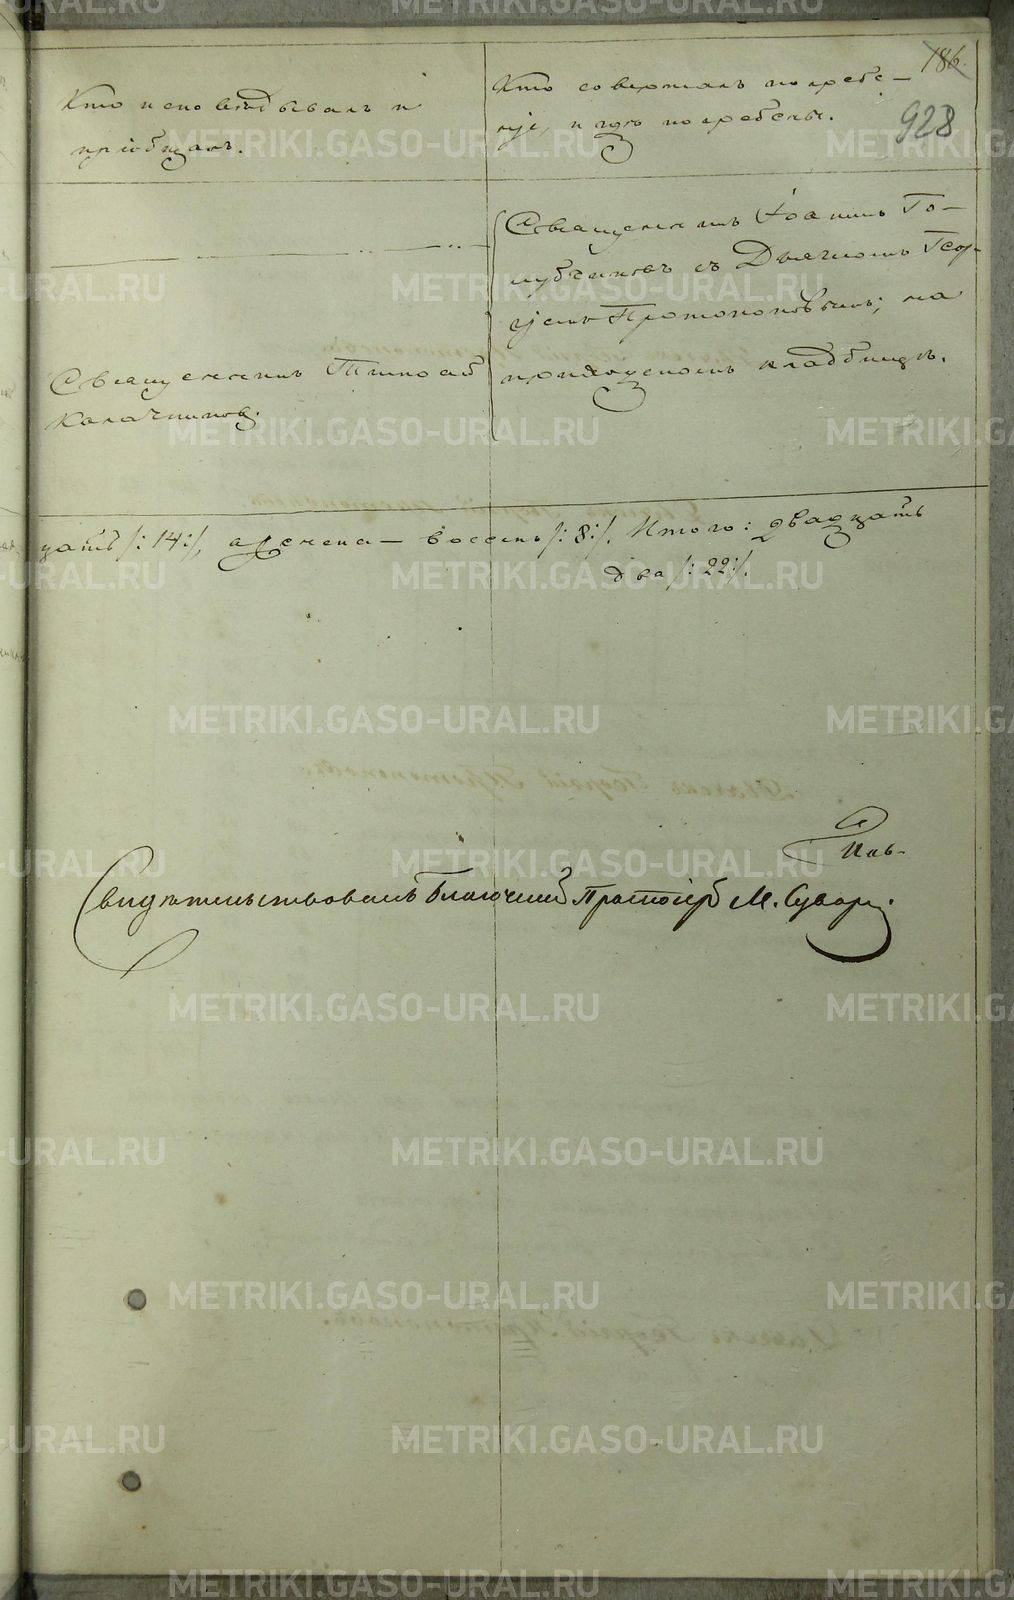 186.
928
Кто исповѣдывалъ и
пріобщалъ.
Кто совершалъ погребе-
ніе, и гдѣ погребены.
Священникъ Іоаннъ Го-
лубчиковъ съ Дьячкомъ Геор-
гіемъ Протопоповымъ; на
приходскомъ кладбищѣ.
Священникъ Тимоѳей
Калачниковъ.
цать /: 14 :/, а женска – восемь /: 8 :/. Итого: двадцать
два /: 22 :/.
Свидѣтельствовалъ Благочинный Протоіерей М. Суворовъ.
METRIKI.GASO-URAL.RU